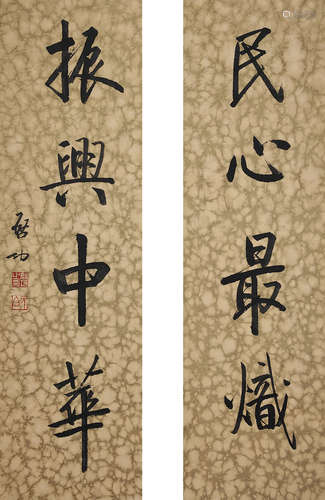 民心最熾
振興中華
啓功